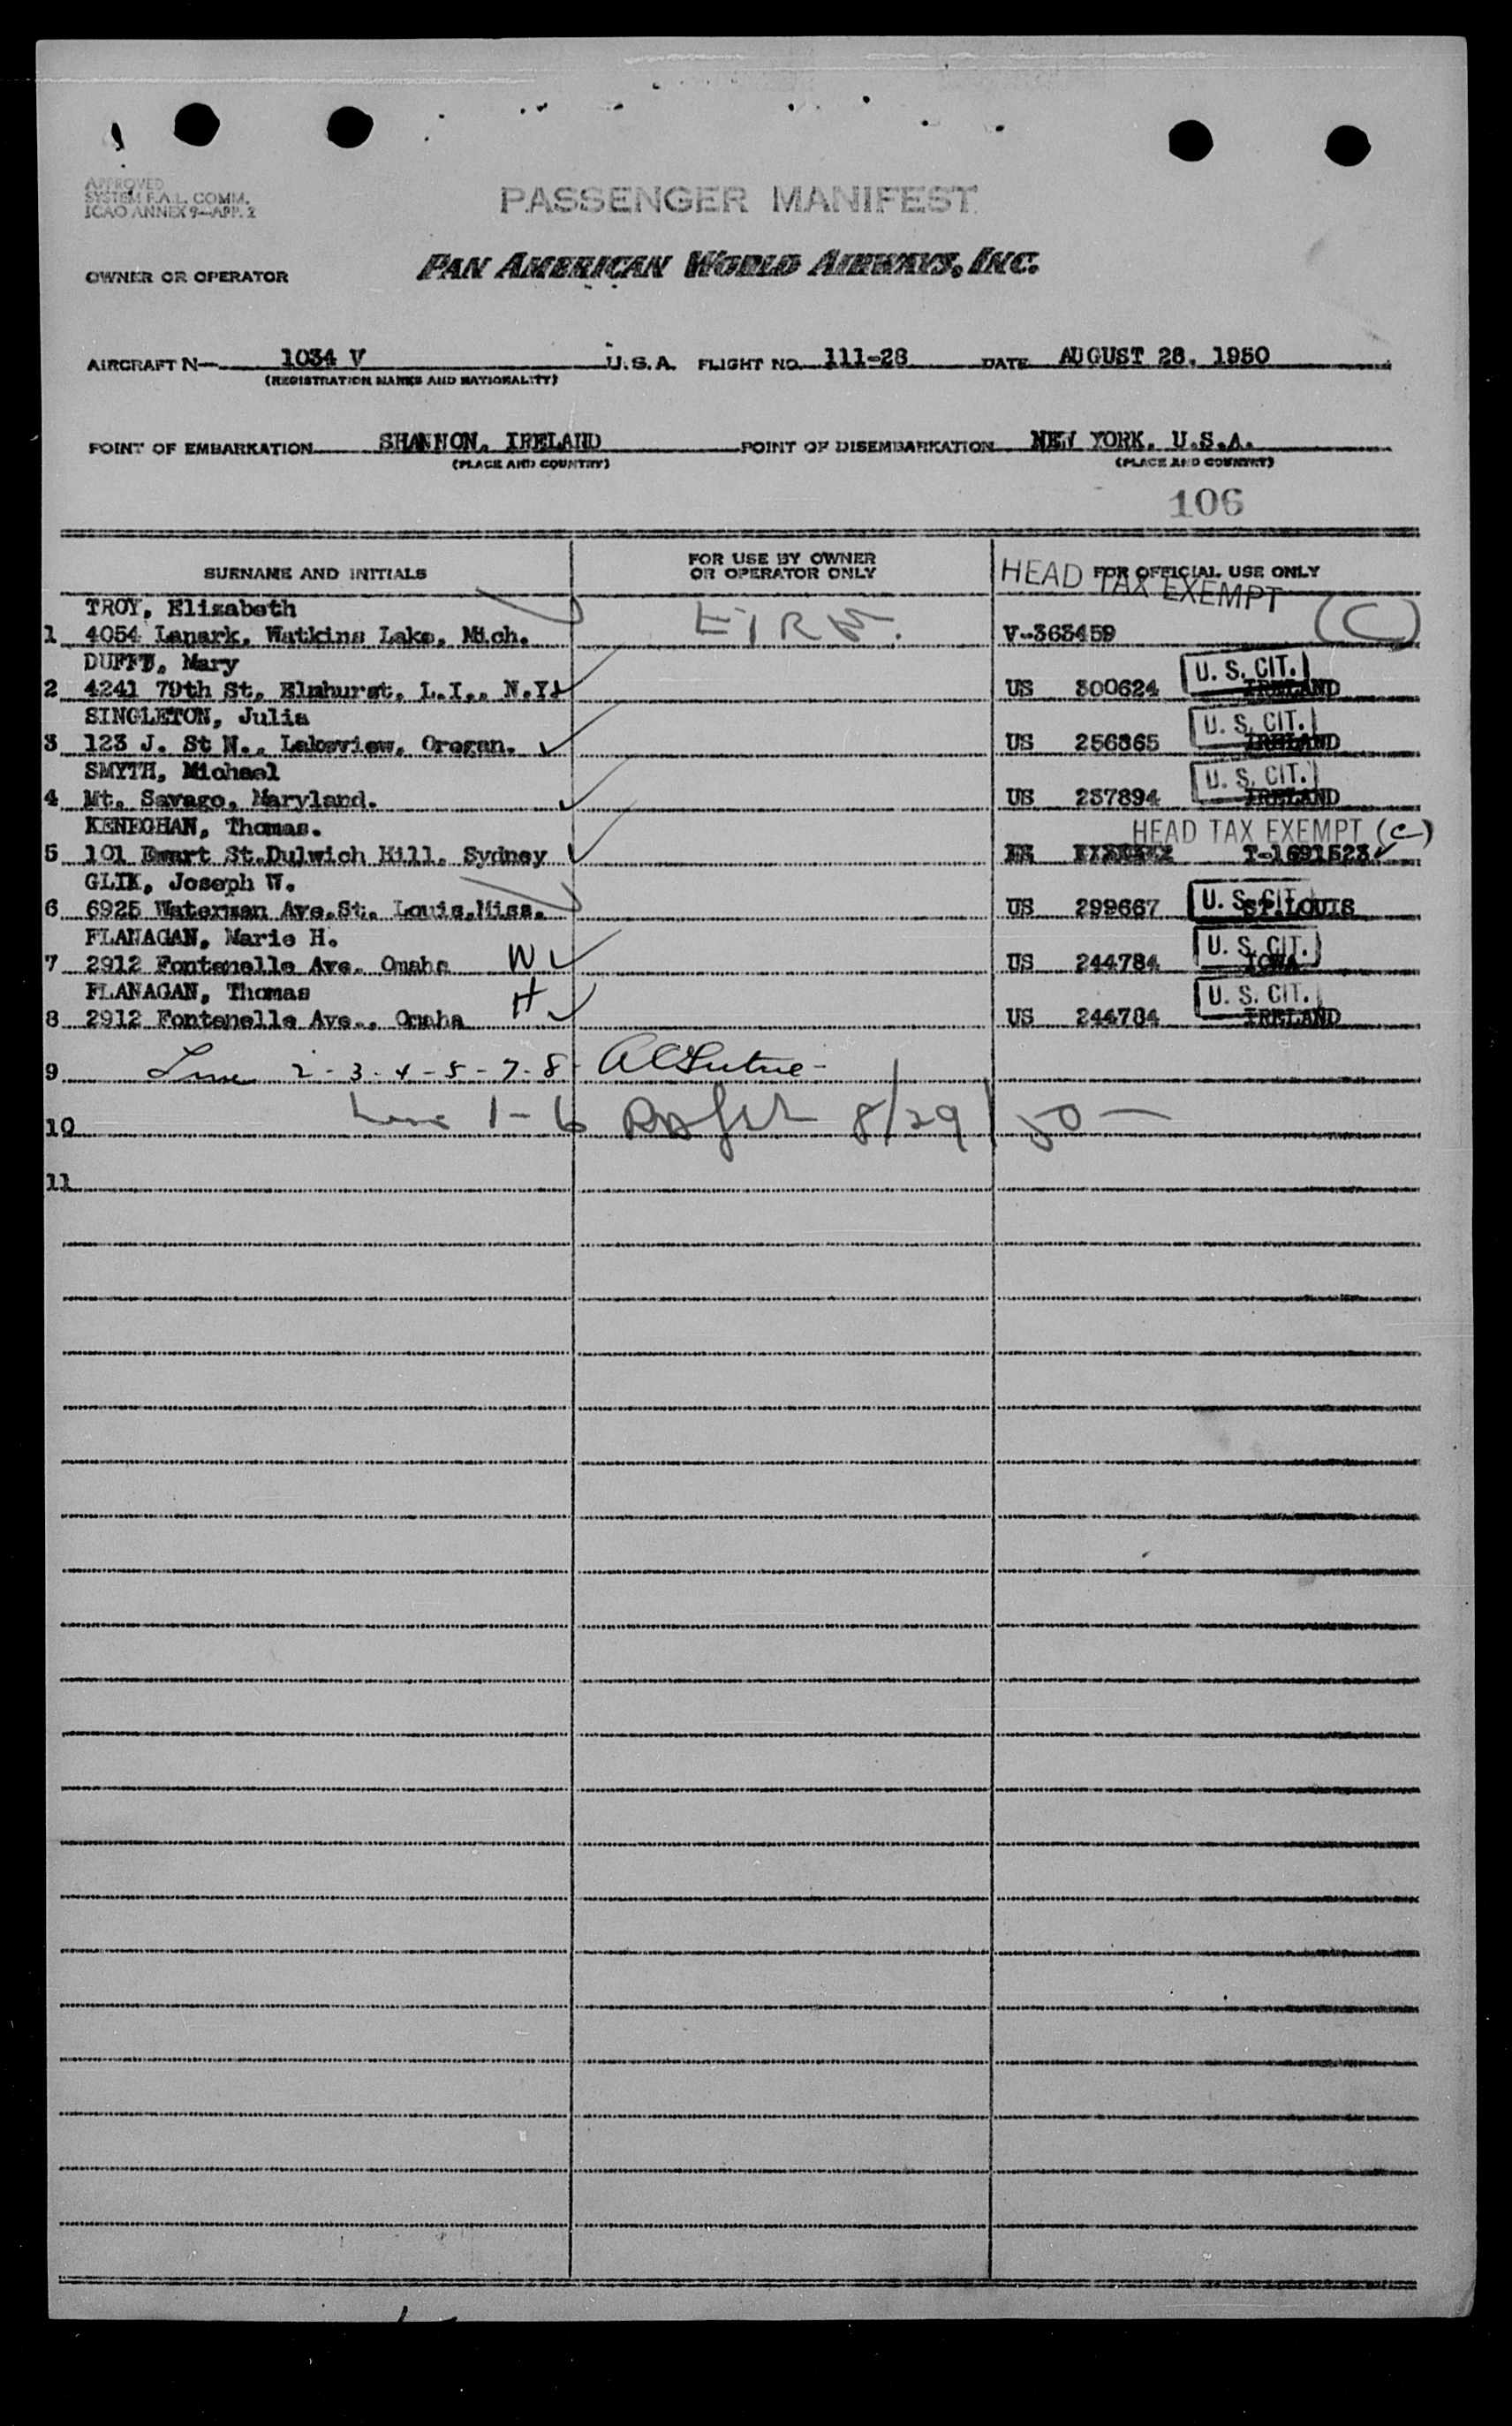 APPROVED
SYSTEM F.A.L. COMM.
ICAO ANNEX 9—APP. 2
PASSENGER MANIFEST
OWNER OR OPERATOR PAN AMERICAN WORLD AIRWAYS, INC.
AIRCRAFT N— 1034 V U.S.A. FLIGHT NO. 111-28 DATE AUGUST 28, 1950
(REGISTRATION MARKS AND NATIONALITY)
POINT OF EMBARKATION SHANNON, IRELAND POINT OF DISEMBARKATION NEW YORK, U.S.A.
(PLACE AND COUNTRY) (PLACE AND COUNTRY)
106
SURNAME AND INITIALS FOR USE BY OWNER OR OPERATOR ONLY FOR OFFICIAL USE ONLY
HEAD TAX EXEMPT
TROY, Elizabeth
1 4054 Lanark, Watkins Lake, Mich. V-363459 (C)
DUFFY, Mary
2 4241 79th St, Elmhurst, L.I., N.Y. US 300624 U. S. CIT. IRELAND
SINGLETON, Julia
3 123 J. St N., Lakeview, Oregan. US 256865 U. S. CIT. IRELAND
SMYTH, Michael
4 Mt. Savage, Maryland. US 237894 U. S. CIT. IRELAND
KENEGHAN, Thomas. HEAD TAX EXEMPT (C)
5 101 Ewart St.Dulwich Hill, Sydney T-1691523
GLIK, Joseph W.
6 6925 Waterman Ave.St. Louis,Miss. US 299667 U. S. CIT. ST.LOUIS
FLANAGAN, Marie H.
7 2912 Fontenelle Ave. Omaha W US 244784 U. S. CIT. IOWA
FLANAGAN, Thomas
8 2912 Fontenelle Ave., Omaha H US 244784 U. S. CIT. IRELAND
9 Line 2-3-4-5-7-8
10 Line 1-6 8/29/50
11